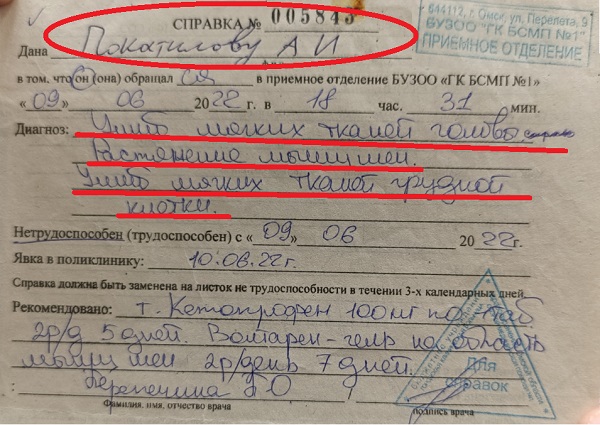 СПРАВКА № 005843
644112, г. Омск, ул. Перелета, 9
БУЗОО "ГК БСМП №1"
ПРИЕМНОЕ ОТДЕЛЕНИЕ
Дана Покатилову А И
в том, что он (она) обращал ся в приемное отделение БУЗОО «ГК БСМП №1»
« 09 » 06 2022г. в 18 час. 31 мин.
Диагноз: Ушиб мягких тканей головы справа
Растяжение мышц шеи.
Ушиб мягких тканей грудной
клетки.
Нетрудоспособен (трудоспособен) с « 09 » 06 2022г.
Явка в поликлинику: 10.06.22г.
Справка должна быть заменена на листок не трудоспособности в течении 3-х календарных дней.
Рекомендовано: т. Кетопрофен 100мг по 1таб
2р/д 5 дней. Волтарен-гель на область
мышц шеи 2р/день 7 дней.
Для
справок
Фамилия, имя, отчество врача подпись врача